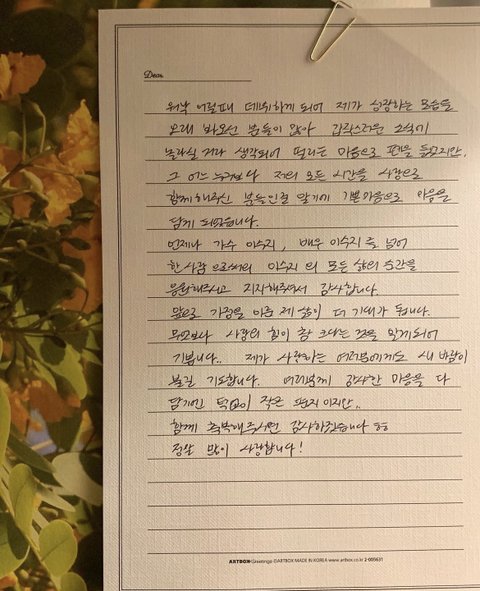 Dear.
워낙 어릴때 데뷔하게 되어 제가 성장하는 모습을
오래 봐오신 분들이 많아 갑작스러운 소식에
놀라실 거라 생각되어 떨리는 마음으로 펜을 들었지만,
그 어느 누구보다 저의 모든 시간을 사랑으로
함께해주신 분들인걸 알기에 기쁜마음으로 마음을
담게 되었습니다.
언제나 가수 이수지, 배우 이수지를 넘어
한사람으로서의 이수지의 모든 삶의 순간을
응원해주시고 지지해주셔서 감사합니다.
앞으로 가정을 이룬 제 삶이 더 기대가 됩니다.
무엇보다 사랑의 힘이 참 크다는 것을 알게되어
기쁩니다.. 제가 사랑하는 여러분에게도 새 바람이
불길 기도합니다. 여러분께 감사한 마음을 다
담기엔 턱없이 작은 편지이지만..
함께 축복해주시면 감사하겠습니다 ㅎㅎ
정말 많이 사랑합니다!
ARTBOX Greetings ©ARTBOX MADE IN KOREA www.artbox.co.kr 2-005631